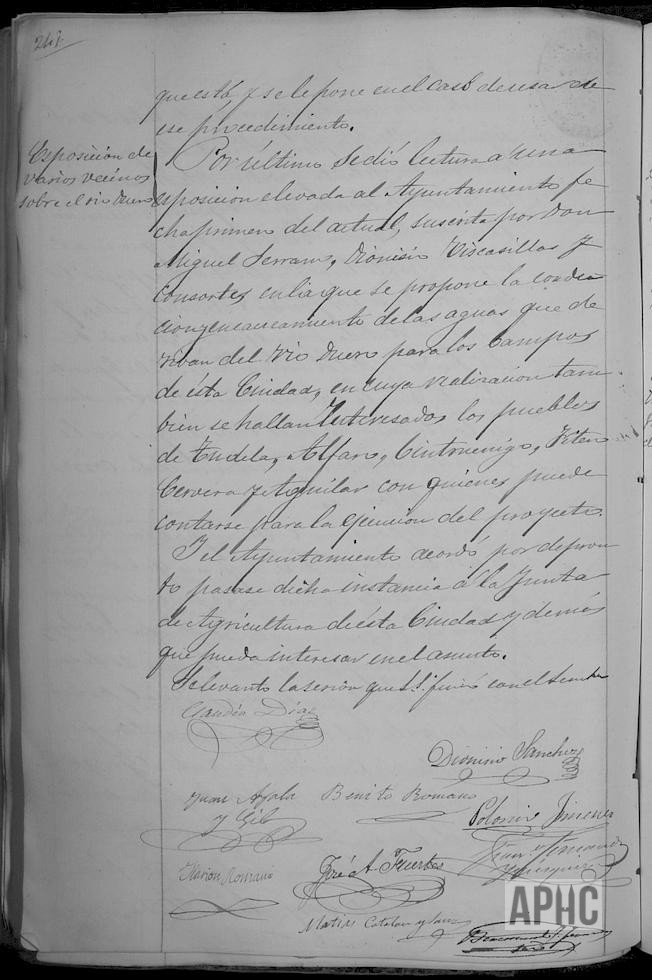 248
que está, y se le pone en el caso de usar de
ese procedimiento.
Esposicion de
varios vecinos
sobre el rio Duero
Por último se dió lectura a una
esposicion elevada al Ayuntamiento fe
cha primero del actual, suscrita por Don
Miguel Serrano, Dionisio Viscasillas y
consortes, en la que se propone la conduc
cion y encauzamiento de las aguas que de
rivan del Rio Duero para los Campos
de ésta Ciudad, en cuya realizacion tam
bien se hallan Interesados los pueblos
de Tudela, Alfaro, Cintruenigo, Fitero
Cervera y Aguilar con quienes puede
contarse para la ejecucion del proyecto.
Y el Ayuntamiento acordó por depron
to pasase dicha instancia á la Junta
de Agricultura de ésta Ciudad y demás
que pueda interesar en el asunto.
Se levantó la sesion que S.S. firmó con el
Claudio Díaz
Dionisio Sanchez
Juan Ayala
y Gil
Benito Romano
Polonio Jimenez
Hilarion Romano
José A. Fuertes
Matias Catalan y
APHC